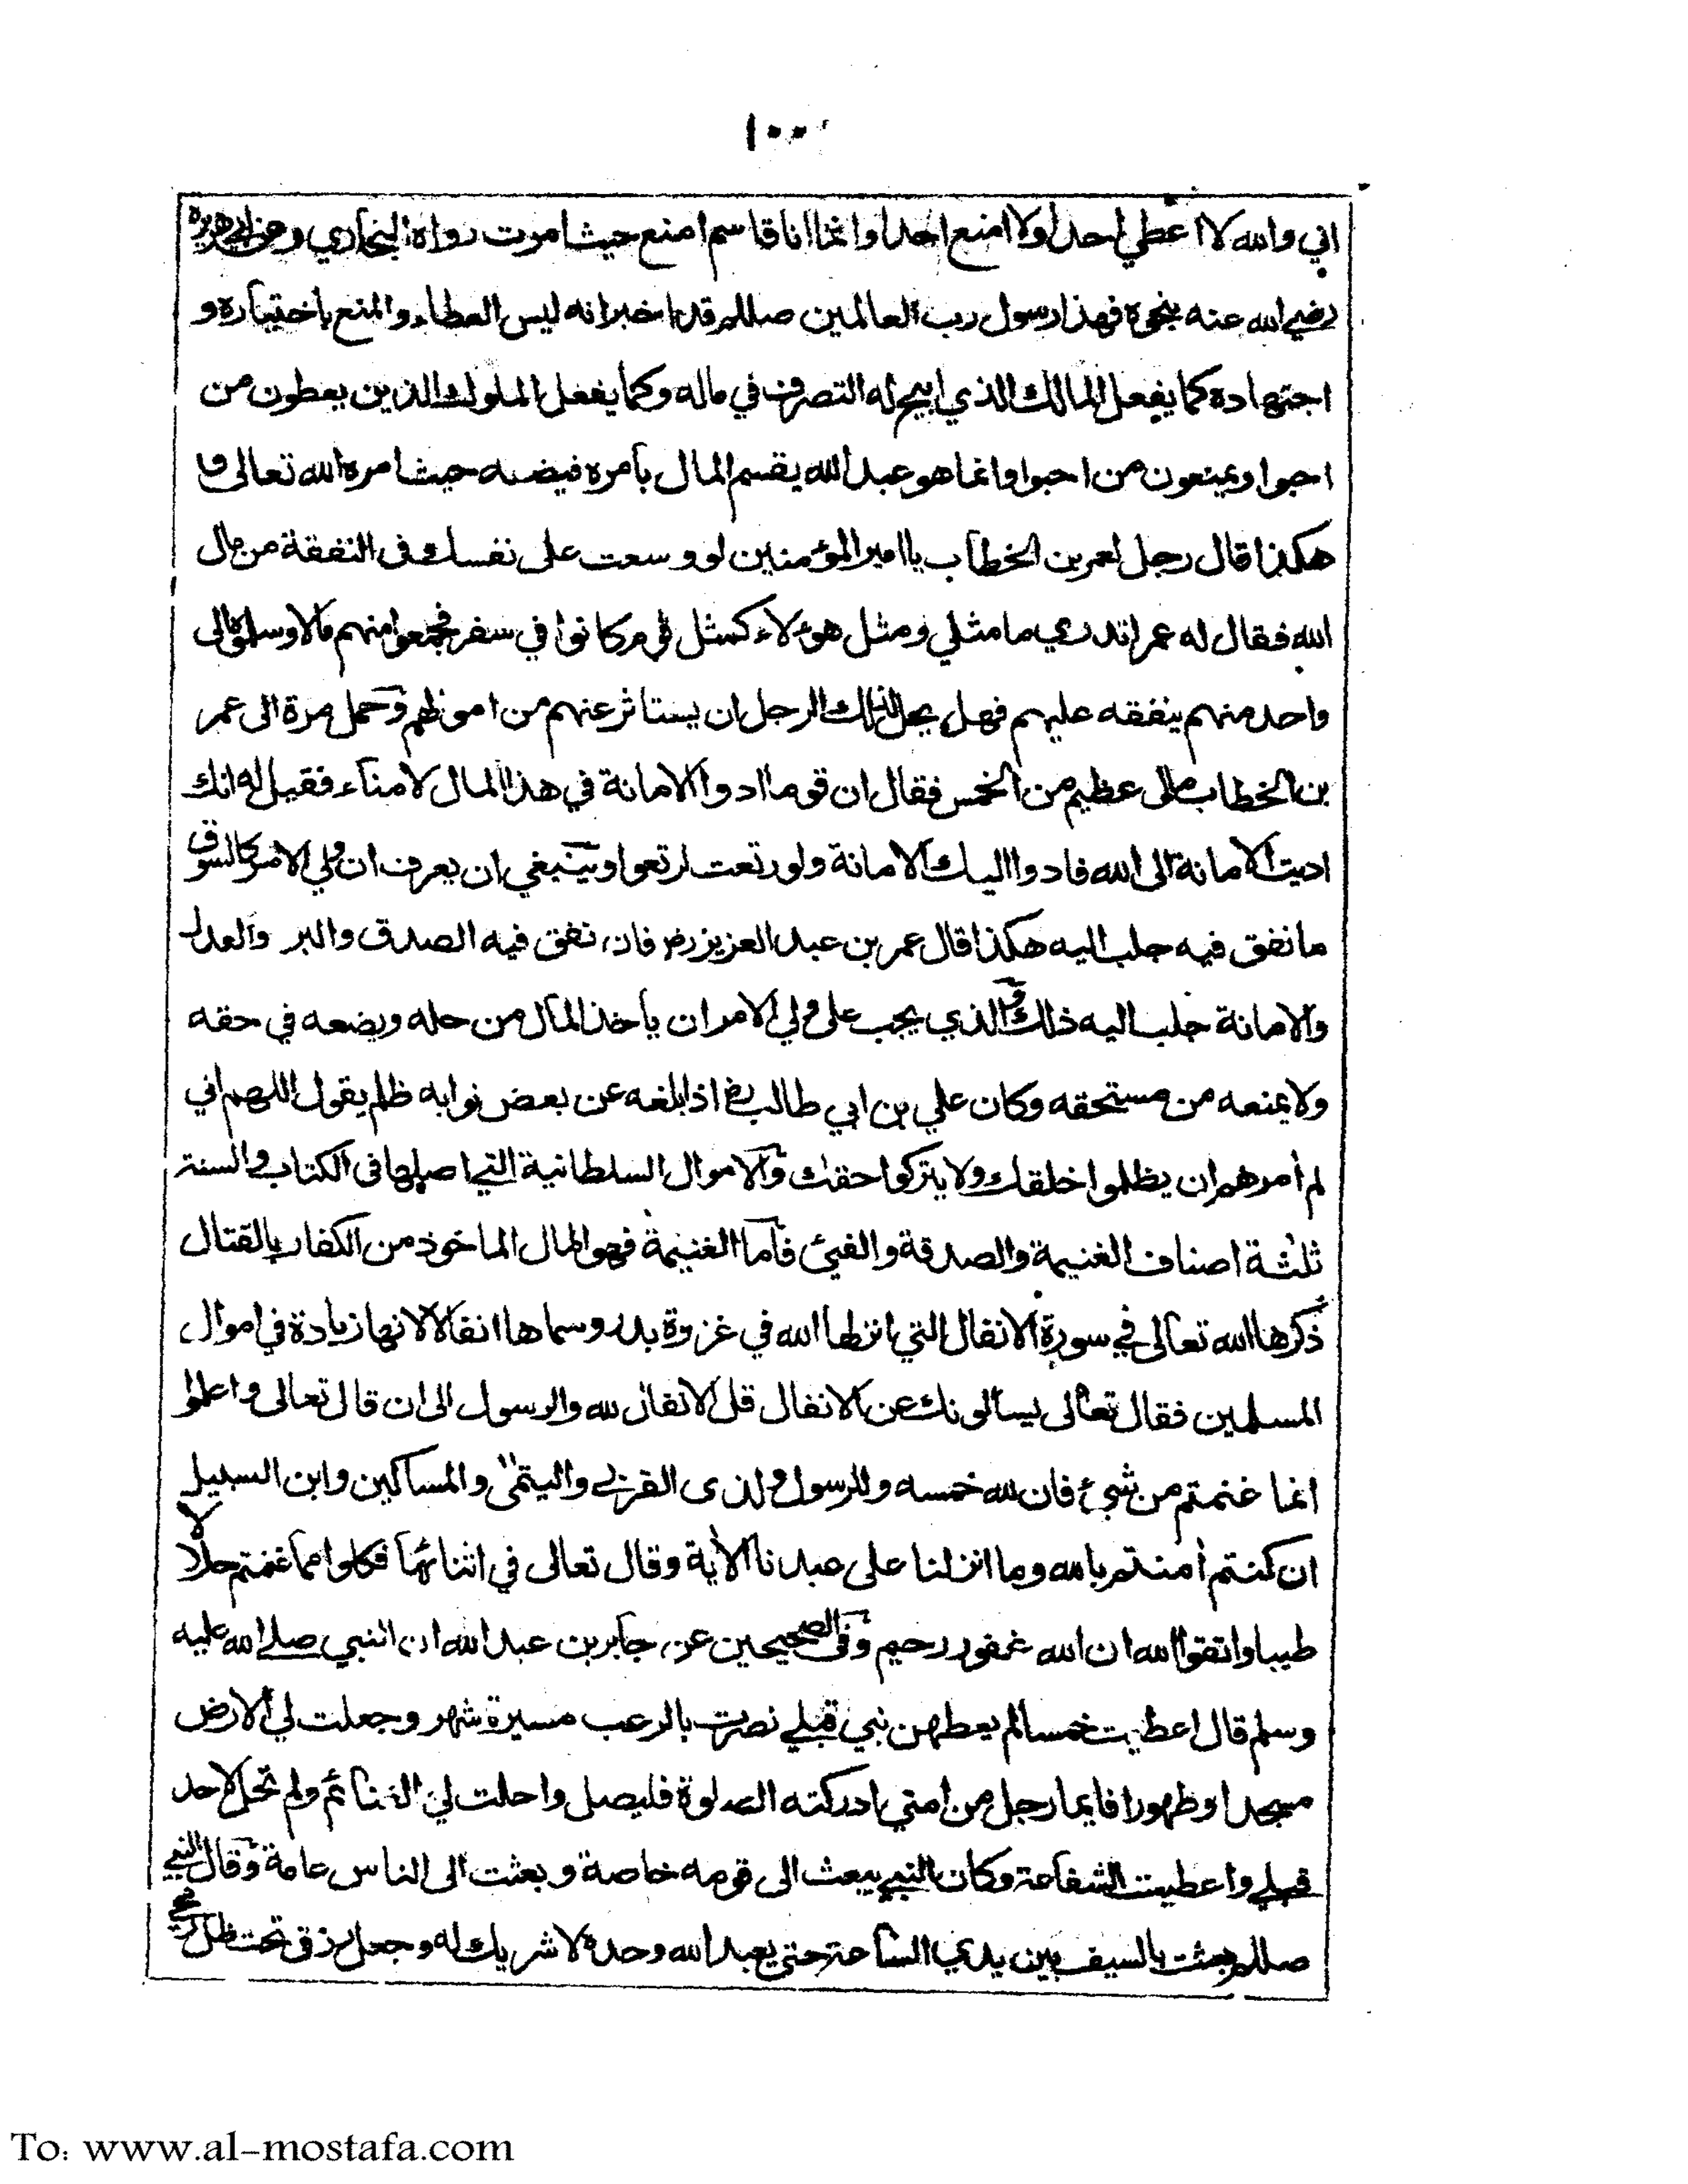 ١٠٠
اني والله لا اعطي احدا ولا امنع احدا وانما انا قاسم امنع حيث امرت رواه البخاري وعن ابي هريرة
رضي الله عنه بنحوه فهذا رسول رب العالمين صللم قد اخبر انه ليس العطاء والمنع باختياره و
اجتهاده كما يفعل المالك الذي ابيح له التصرف في ماله وكما يفعل الملوك الذين يعطون من
احبوا ويمنعون من احبوا وانما هو عبد الله يقسم المال بامره فيضعه حيث امره الله تعالى و
هكذا قال رجل لعمر بن الخطاب يا امير المؤمنين لو وسعت على نفسك في النفقة من مال
الله فقال له عمر اتدري ما مثلي ومثل هؤلاء كمثل قوم كانوا في سفر فجمعوا منهم مالا وسلموه الى
واحد منهم ينفقه عليهم فهل يحل لذلك الرجل ان يستاثر عنهم من اموالهم وحمل مرة الى عمر
بن الخطاب مالى عظيم من الخمس فقال ان قوما ادوا الامانة في هذا المال لامناء فقيل له انك
اديت الامانة الى الله فادوا اليك الامانة ولو رتعت لرتعوا وينبغي ان يعرف ان ولي الامر كالسوق
ما نفق فيه جلب اليه هكذا قال عمر بن عبد العزيز رض فان نفق فيه الصدق والبر والعدل
والامانة جلب اليه ذلك والذي يجب على ولي الامر ان ياخذ المال من حله ويضعه في حقه
ولا يمنعه من مستحقه وكان علي بن ابي طالب رض اذا بلغه عن بعض نوابه ظلم يقول اللهم اني
لم أمرهم ان يظلموا خلقك ولا يتركوا حقك والاموال السلطانية التي اصلها في الكتاب والسنة
ثلثة اصناف الغنيمة والصدقة والفيئ فاما الغنيمة فهو المال الماخوذ من الكفار بالقتال
ذكرها الله تعالى في سورة الانفال التي انزلها الله في غزوة بدر وسماها انفالا لانها زيادة في اموال
المسلمين فقال تعالى يسالونك عن الانفال قل الانفال لله والرسول الى ان قال تعالى واعلموا
انما غنمتم من شيء فان لله خمسه وللرسول ولذى القربى واليتمى والمساكين وابن السبيل
ان كنتم أمنتم بالله وما انزلنا على عبدنا الأية وقال تعالى في اثنائها فكلوا مما غنمتم حلالا
طيبا واتقوا الله ان الله غفور رحيم وفي الصحيحين عن جابر بن عبد الله ان النبي صلى الله عليه
وسلم قال اعطيت خمسا لم يعطهن نبي قبلي نصرت بالرعب مسيرة شهر وجعلت لي الارض
مسجدا وطهورا فايما رجل من امتي ادركته الصلوة فليصل واحلت لي الغنائم ولم تحل لاحد
قبلي واعطيت الشفاعة وكان النبي يبعث الى قومه خاصة وبعثت الى الناس عامة وقال النبي
صللم بعثت بالسيف بين يدي الساعة حتى يعبد الله وحده لا شريك له وجعل رزقي تحت ظل رمحي
To: www.al-mostafa.com